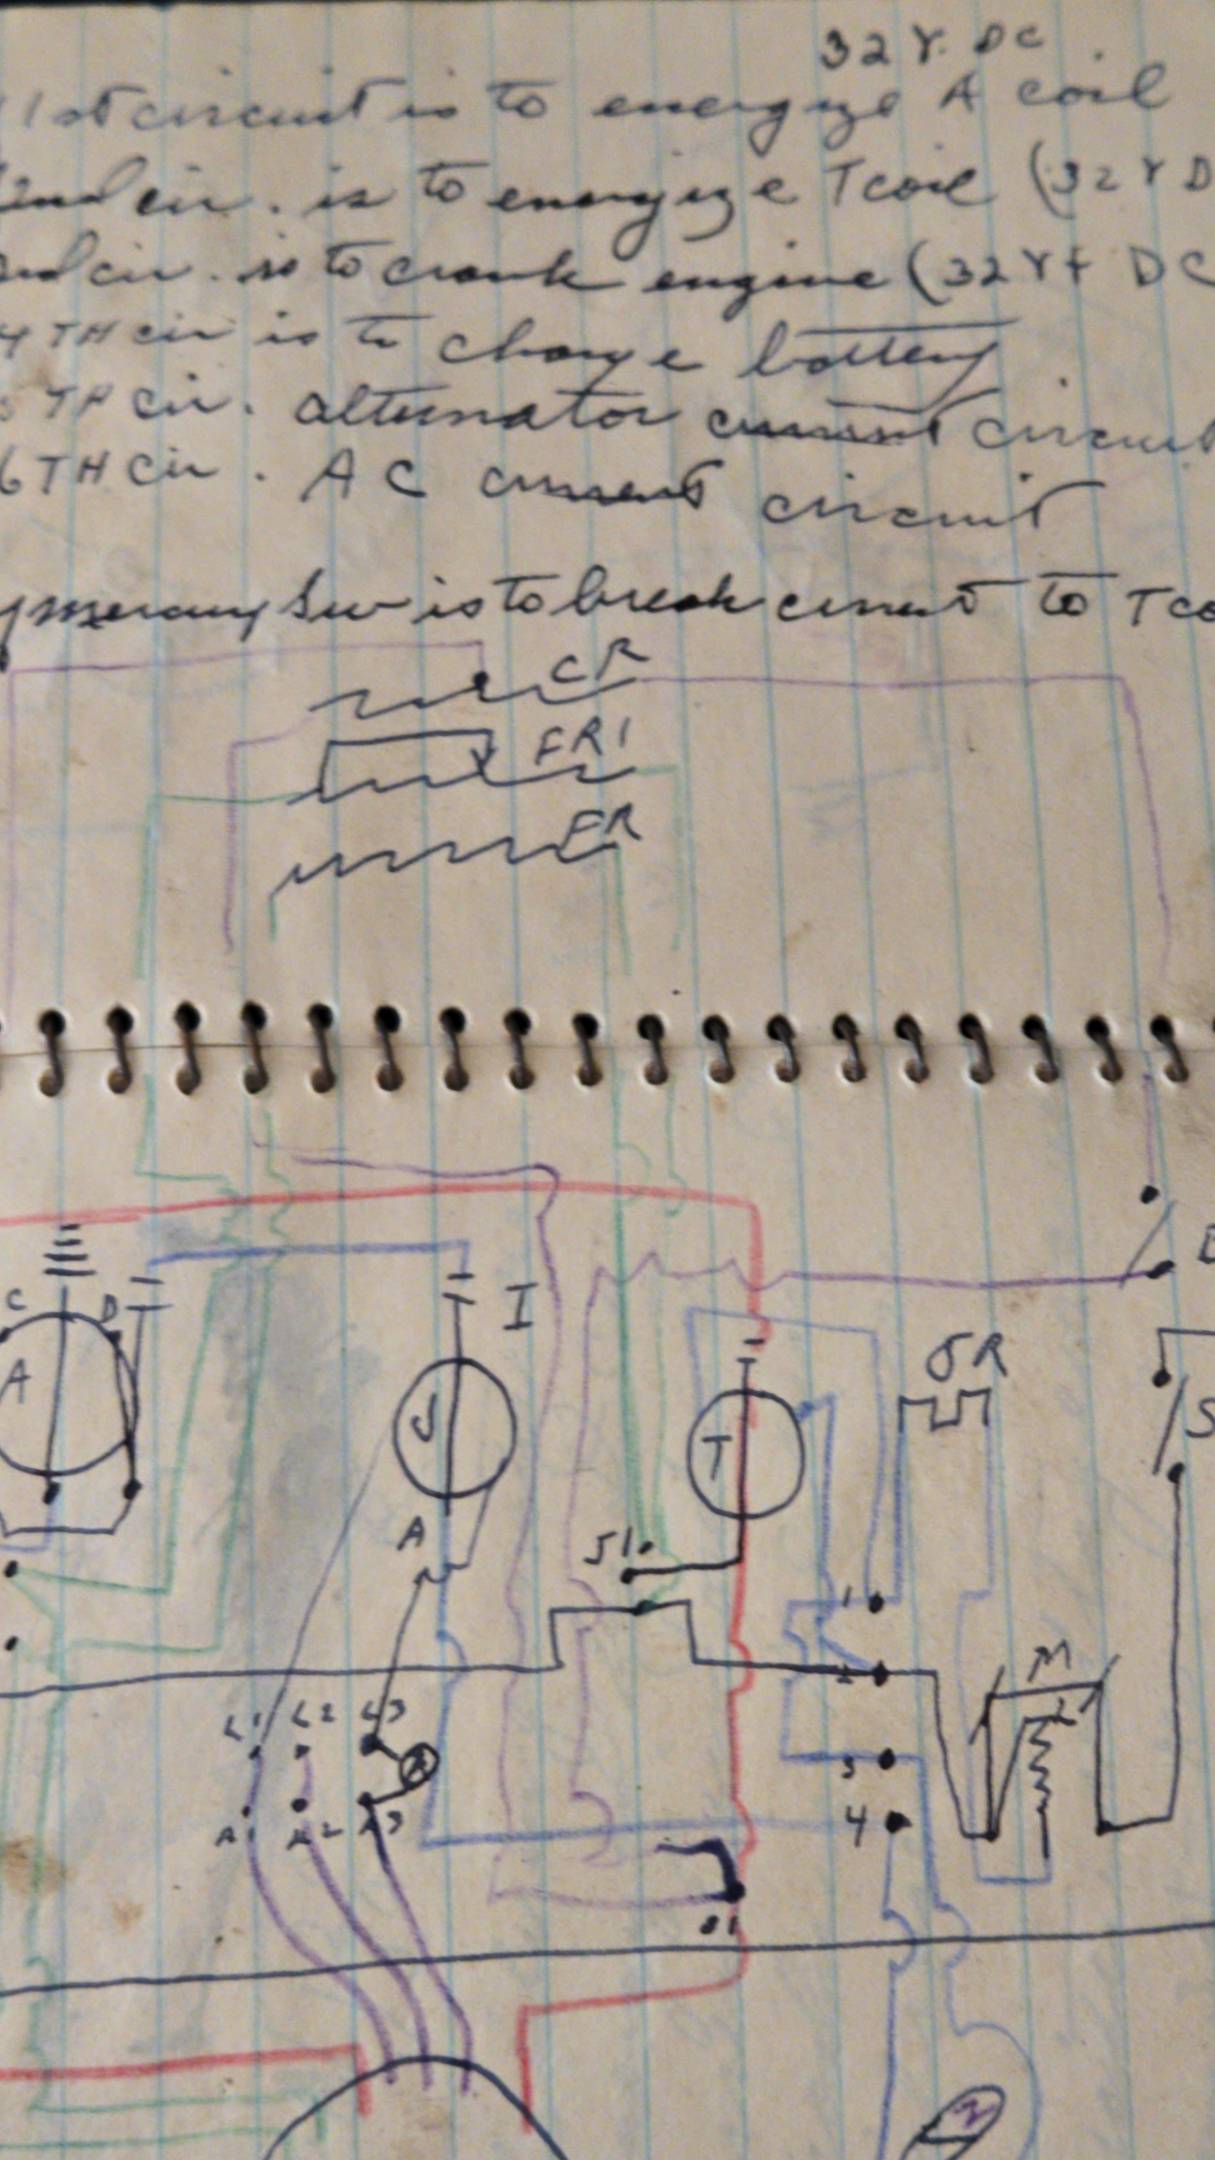 32 V. DC
1st circuit is to energize A coil
2nd cir. is to energize T coil (32 V D
cir. is to crank engine (32 V+ DC
4 TH cir is to charge battery
5 TH cir. alternator current circuit
6 TH Cir. AC current circuit
mercury Sw is to break current to T co
CR
FR1
FR
C D
A
I
V
T
SR
A
S1
S
1
2
M
L1 L2 L3
A
3
A1 A2 A3
4
S1
3